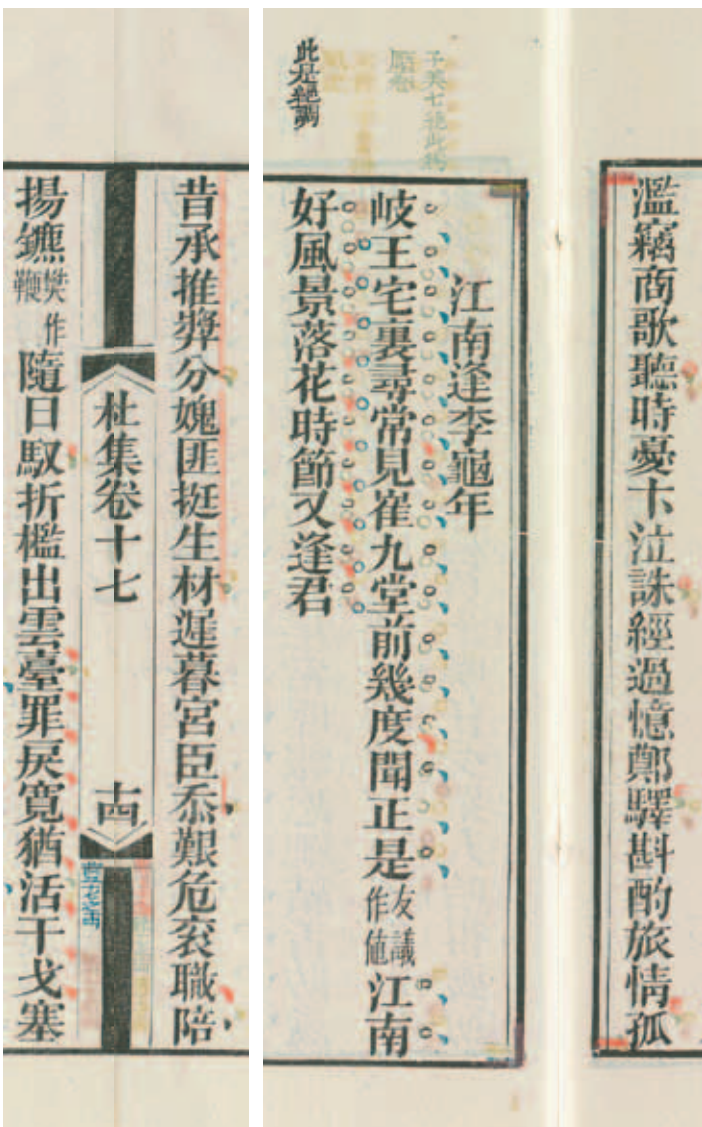 濫竊商歌聽時憂卞泣誅經過憶鄭驛斟酌旅情孤
子美七絕此為
壓卷
此是絕調
江南逢李龜年
岐王宅裏尋常見崔九堂前幾度聞正是友議作値江南
好風景落花時節又逢君
昔承推奬分媿匪挺生材遲暮宮臣忝艱危袞職陪
杜集卷十七
十四
揚鑣樊作鞭隨日馭折檻出雲臺罪戾寬猶活干戈塞